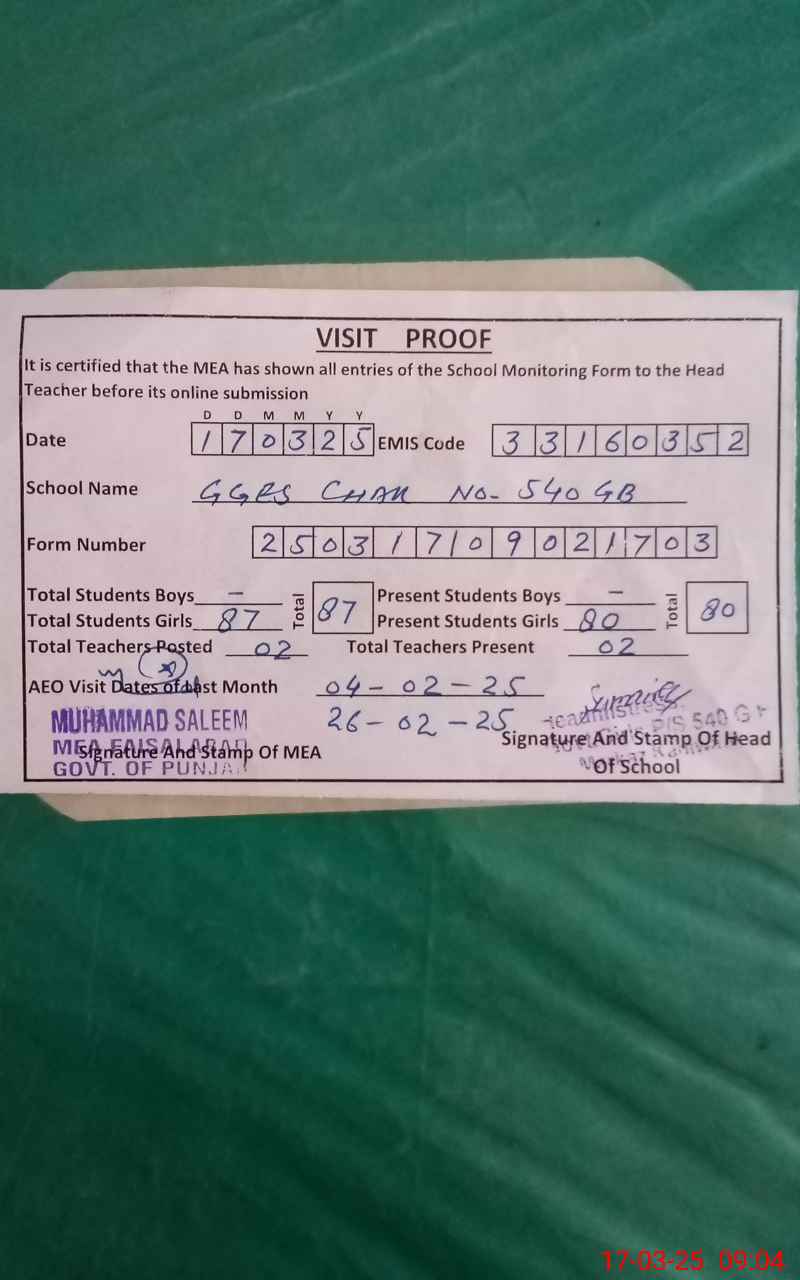 VISIT PROOF
It is certified that the MEA has shown all entries of the School Monitoring Form to the Head
Teacher before its online submission
D D M M Y Y
Date 1 7 0 3 2 5 EMIS Code 3 3 1 6 0 3 5 2
School Name GGPS CHAK NO- 540 GB
Form Number 2 5 0 3 1 7 0 9 0 2 1 7 0 3
Total Students Boys — Total 87 Present Students Boys — Total 80
Total Students Girls 87 Present Students Girls 80
Total Teachers Posted 02 Total Teachers Present 02
AEO Visit Dates of last Month 04-02-25
26-02-25
MUHAMMAD SALEEM
MEA FAISALABAD
GOVT. OF PUNJAB
Signature And Stamp Of MEA
Headmistress
540 G
Signature And Stamp Of Head
Of School
17-03-25 09:04